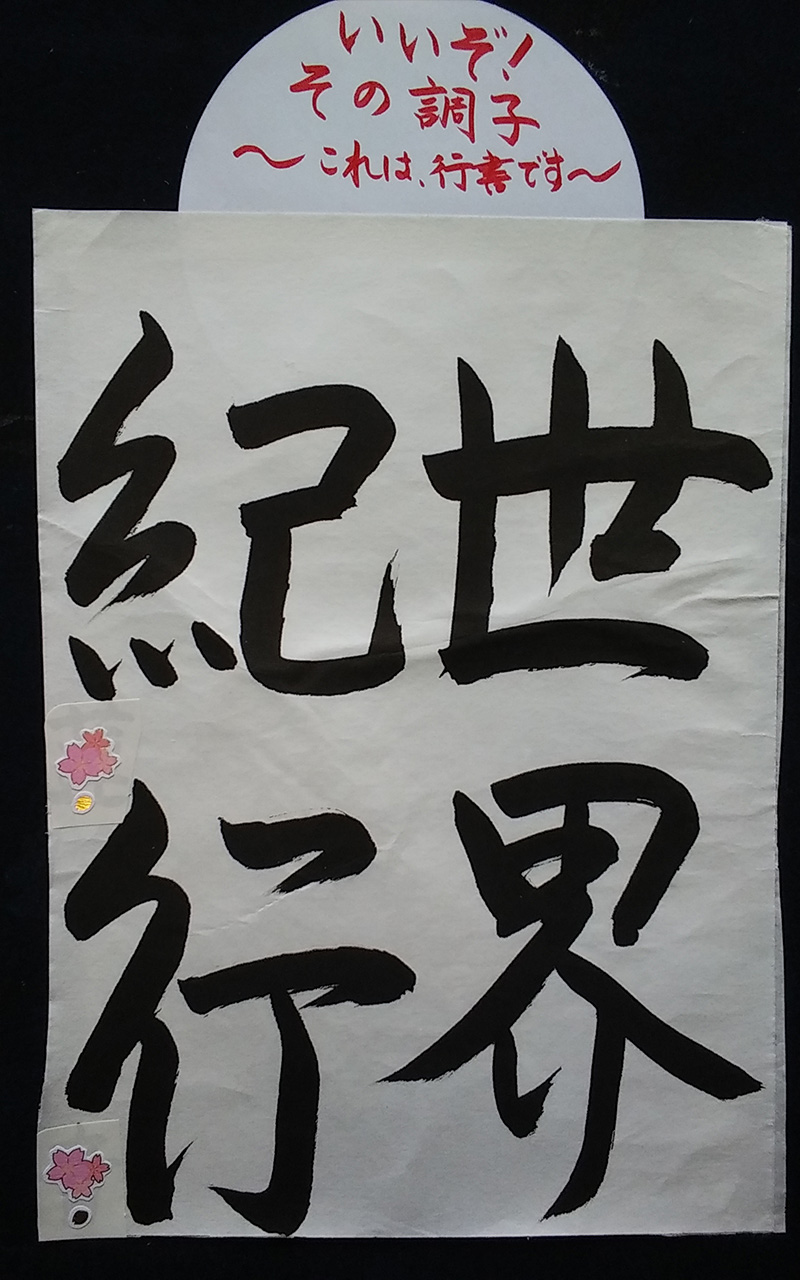 いいぞ!
その調子
〜これは、行書です〜
世界
紀行